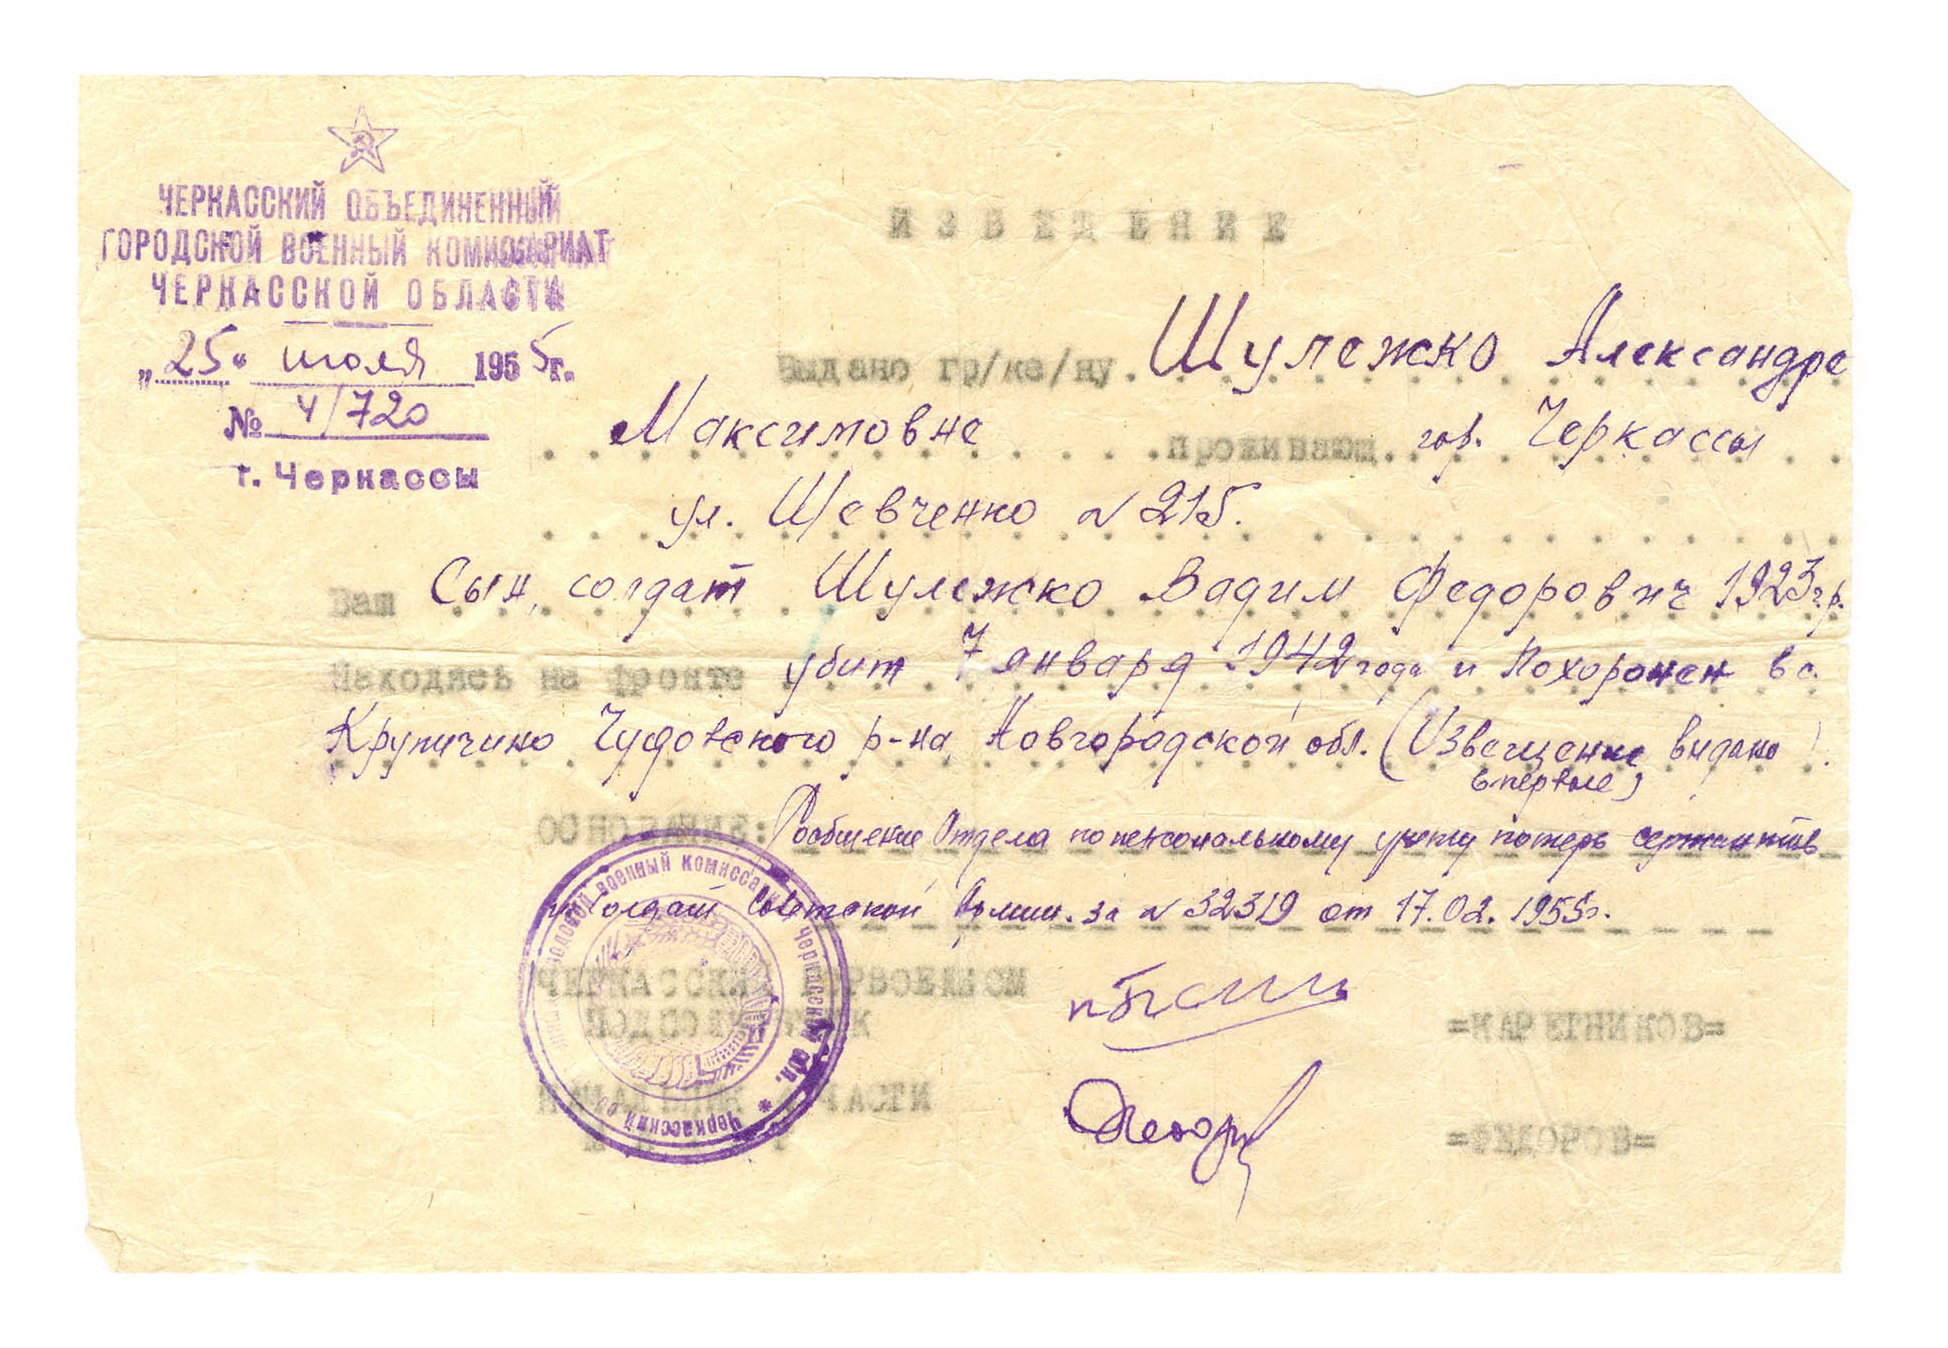 ЧЕРКАССКИЙ ОБЪЕДИНЕННЫЙ
ГОРОДСКОЙ ВОЕННЫЙ КОМИССАРИАТ
ЧЕРКАССКОЙ ОБЛАСТИ
„25“ июля 1955г.
№ 4/720
г. Черкассы
ИЗВЕЩЕНИЕ
Выдано гр/ке/ну. Шулежко Александре
Максимовне проживающ. гор. Черкассы
ул. Шевченко N 215.
Ваш Сын, солдат Шулежко Вадим Федорович 1923г.р.
Находясь на фронте убит 7 января 1942 года и похоронен в с.
Крупичино Чудовского р-на, Новгородской обл. (Извещение выдано
впервые)
ОСНОВАНИЕ: Сообщение Отдела по персональному учету потерь сержантов
и солдат Советской Армии. за N 32319 от 17.02.1955г.
ЧЕРКАССКИЙ ГОРВОЕНКОМ
ПОДПОЛКОВНИК =КАРЕТНИКОВ=
НАЧАЛЬНИК ЧАСТИ
=ФЕДОРОВ=
городской военный комиссариат Черкасской обл. * Черкасский